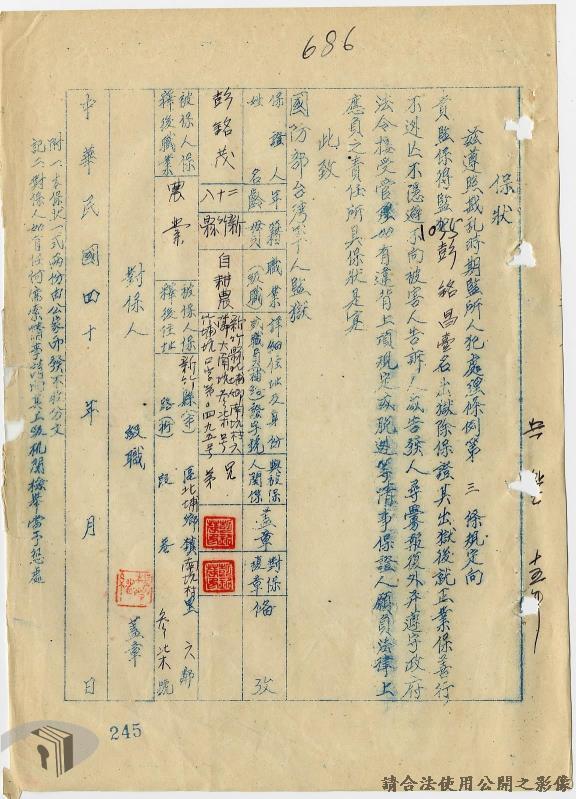 686
保狀
茲遵照戡亂時期監所人犯處理條例第三條規定向
貴監保得監犯1025彭銘昌壹名出獄除保證其出獄後就正業保善行
不逃亡不隱避不向被害人告訴人或告發人尋釁報復外并遵守政府
法令接受管束如有違背上項規定或脫逃等情事保證人願負法律上
應負之責任所具保狀是實
此致
國防部台灣軍人監獄
保證人姓名 年齡 籍貫 職業(或級職) 詳細住址及身份 與被保人關係 蓋章 對保復章 備攷
彭銘茂 二十八 新竹縣 自耕農 兄弟
被保人保釋後職業 農業 被保人保釋後住址 新竹縣(市) 區北埔鄉鎮南坑村里 六鄰 路街 段 巷 參柒號
對保人 級職 蓋章
中華民國四十 年 月 日
附記 一、本保狀一式兩份由公家印發不收分文
二、對保人如有任何需索情事請向其上級机關檢舉當予懲處
245
請合法使用公開之影像